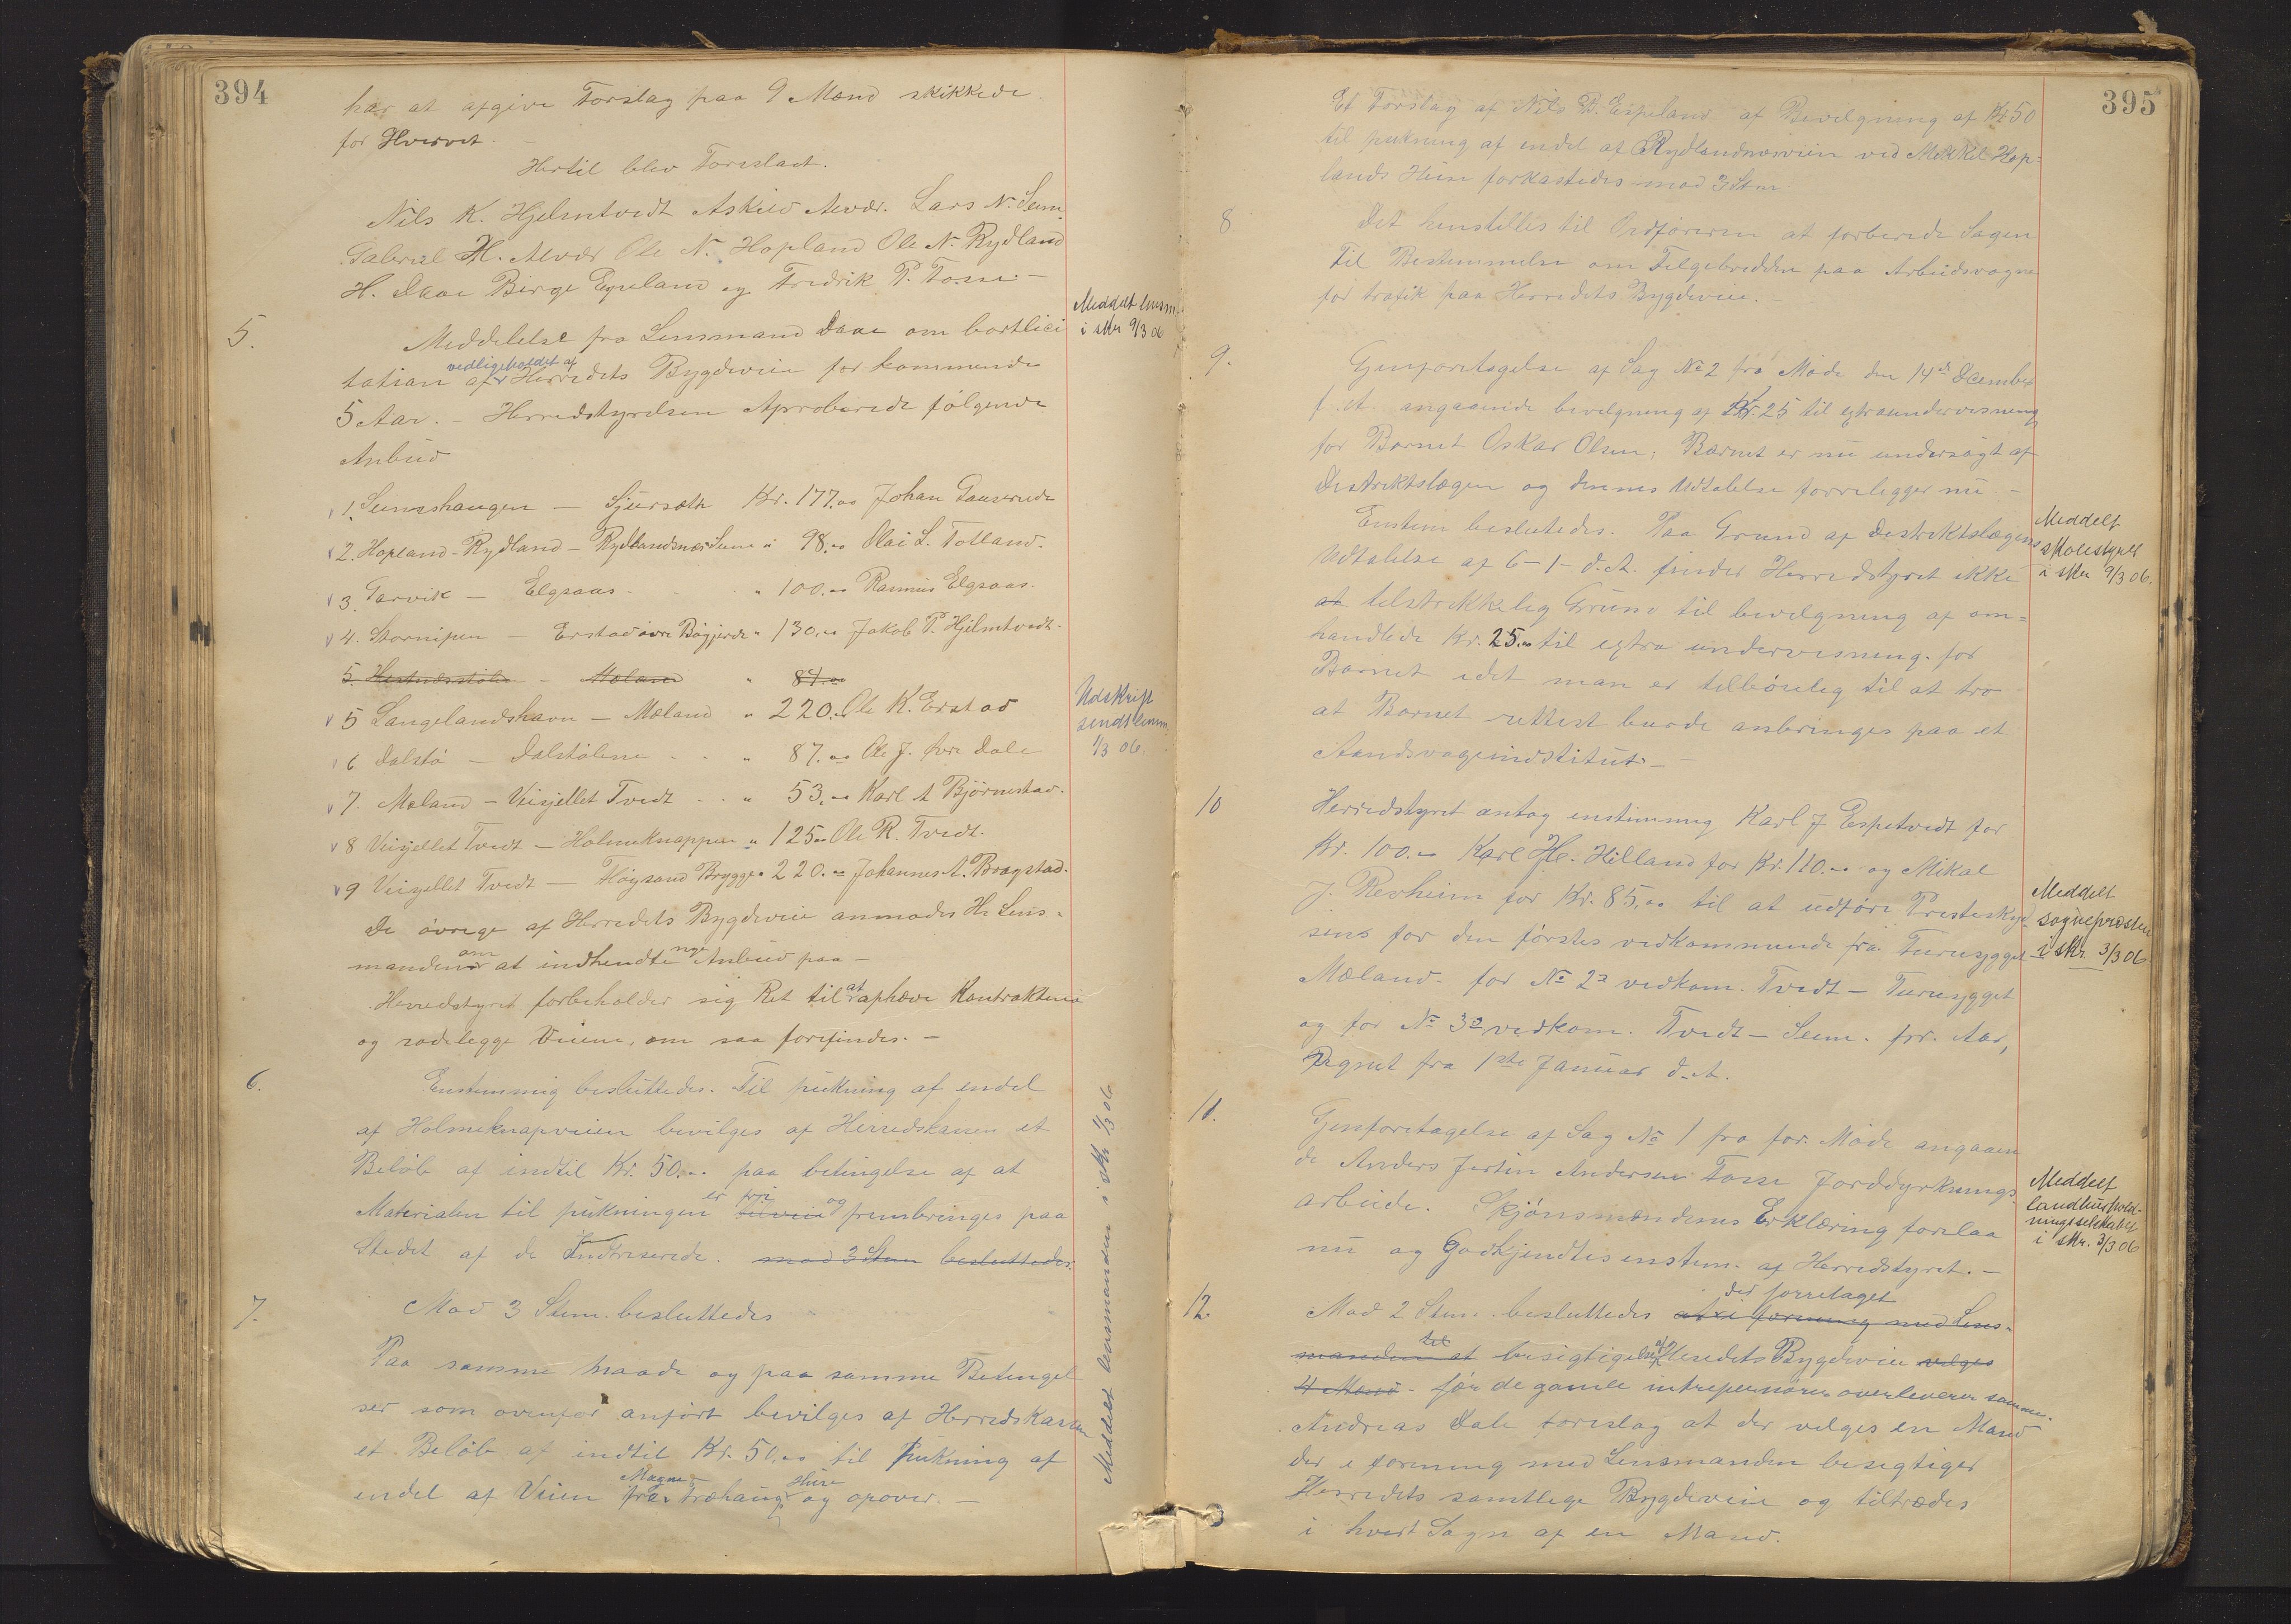 394
har at afgive Forslag paa 9 Mænd skikkede
for Hvervet.
Hertil blev Foreslaat.
Nils K. Hjelmtvedt Askild Alvær. Lars N. Seim
Gabriel H. Alvær Ole N. Hopland Ole N. Rydland
H. Daae Birge Eyeland og Fredrik P. Tosse –
5. Meddelelse fra Lensmand Daae om bortlici
tation af vedligeholdet af Herredets Bygdeveie for kommende
5 Aar. – Herredstyrelsen Aproberede følgende
Anbud
Meddelt lensm.
i skr 9/3 06
1. Seimshaugen – Sjursæth Kr. 177.00 Johan
2. Hopland-Rydland – Rydlandsnæs Seim " 98.00 Olai L. Totland.
3. Tarvik – Elgsaas " 100.00 Rasmus Elgsaas.
4. Stornipen – Erstad øvre Bøgjerde " 130.00 Jakob P. Hjelmtvedt.
5. – Mæland " 84.00
5 Langelandshavn – Mæland " 220.00 Ole K. Erstad
6 Dalstø – Dalstølene " 87.00 Ole J. Dale
7. Mæland – Veisjellet Tvedt " 53.00 Karl A Bjørnestad.
8 Veisjellet Tvedt – Holmeknappen " 125.00 Ole R. Tvedt.
9 Veisjellet Tvedt – Høysand Brygge " 220.00 Johannes A. Bragstad.
Udskrift
sendt lensm.
1/3 06.
De øvrige af Herredets Bygdeveie anmodes Hr Lens-
manden om at indhendte nye Anbud paa –
Herredstyret forbeholder sig Ret til at aphæve Kontrakterne
og rodelegge Veiene, om saa forefindes. –
6. Enstemmig besluttedes. Til pukning af endel
af Holmeknapveien bevilges af Herredskassen et
Beløb af indtil Kr. 50.00 paa betingelse af at
Materialen til pukningen er fri og frembringes paa
Stedet af de Interesserede. mod 3 Stem besluttedes.
7. Mod 3 Stem. besluttedes
Paa samme maade og paa samme Betingel
ser som ovenfor anført bevilges af Herredskassen
et Beløb af indtil Kr. 50.00 til Pukning af
endel af Veien fra Magne Træhaug shuse og opover. –
Meddelt lensmanden i skr 1/3 06
395
Et Forslag af Nils B. Espeland af Bevilgning af Kr 50
til pukning af endel af Rydlandnæsveien ved Mikkel Hop=
lands Huse forkastedes mod 3 Stem.
8 Det henstilles til Ordføreren at forberede Sagen
Til Bestemmelse om Felgebredden paa Arbeidsvogne
for trafik paa Herredets Bygdeveie. –
9. Gjenforetagelse af Sag No 2 fra Møde den 14de December
f. A. angaaende bevilgning af Kr. 25 til extraundervisning
for Barnet Oskar Olsen, Barnet er nu undersøgt af
Destriktslægen og dennes Udtalelse forreligger nu. –
Enstem beslutedes. Paa Grund af Destriktslægens
Udtalelse af 6-1- d. A. finder Herredstyret ikke
at telstrekkelig Grund til bevilgning af om=
handlede Kr. 25.00 til extra undervisning for
Barnet idet man er telbøielig til at tro
at Barnet rettest burde anbringes paa et
Aandsvageindstitut. –
Meddelt
skolestyret
i skr 9/3 06.
10 Herredstyret antog enstemmig Karl J Espetvedt for
Kr. 100.– Karl H. Hilland for Kr. 110.00 og Mikal
J. Revheim for Kr. 85.00 til at udføre Presteskyd
sens for den førstes vedkommende fra Turuygget –
Mæland – for No 2s vedkom. Tvedt – Turuygget
og for No 3s vedkom. Tvedt – Seim. pr. Aar,
Regnet fra 1ste Januar d. A.
Meddelt
sogneprosten
i skr. 3/3 06
11. Gjenforetagelse af Sag No 1 fra for. Møde angaaen
de Anders Jertin Andersen Tosse Jorddyrknings
arbeide. Skjønsmændenes Erklæring forelaa
nu og Godkjendtes enstem. af Herredstyret. –
Meddelt
landhushold-
ningsselskabet
i skr. 3/3 06
12. Mod 2 Stem. besluttedes der forretaget at i forening med Lens-
manden at til besigtigelse af Heredets Bygdeveie velges
4 Mænd – før de gamle intrepenører overleverer samme.
Andreas Dale foreslog at der velges en Mand
der i forening med Lensmanden besegtiger
Herredets samtlege Bygdeveie og tiltrædes
i hvert Sogn af en Mand.